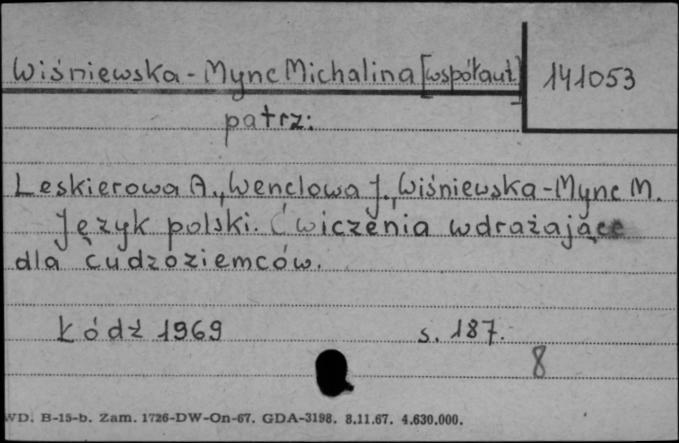 Wiśniewska-Mync Michalina [współaut.] 141053
patrz:
Leskierowa A., Wenclowa J., Wiśniewska-Mync M.
Język polski. Ćwiczenia wdrażające
dla cudzoziemców.
Łódź 1969 s. 187.
8
WD. B-15-b. Zam. 1726-DW-On-67. GDA-3198. 8.11.67. 4.630.000.